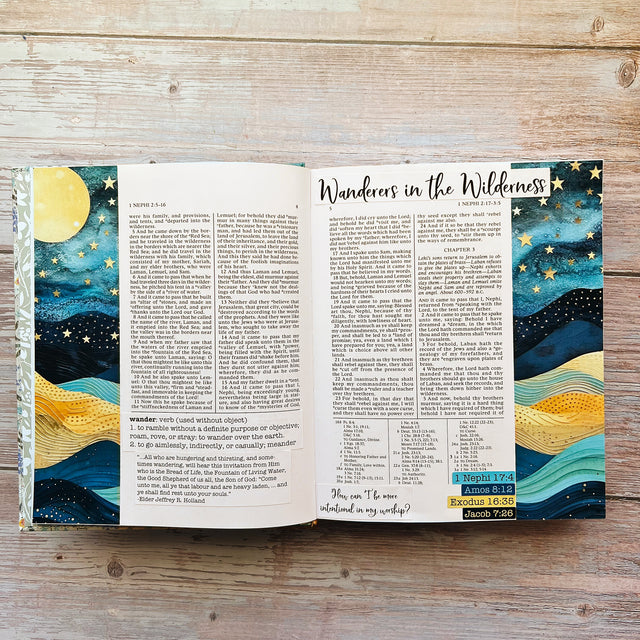 1 NEPHI 2:5-16
were his family, and provisions,
and tents, and departed into the
wilderness.
5 And he came down by the bor-
ders near the shore of the Red Sea;
and he traveled in the wilderness
in the borders which are nearer the
Red Sea; and he did travel in the
wilderness with his family, which
consisted of my mother, Sariah,
and my elder brothers, who were
Laman, Lemuel, and Sam.
6 And it came to pass that when he
had traveled three days in the wilder-
ness, he pitched his tent in a valley
by the side of a river of water.
7 And it came to pass that he built
an altar of stones, and made an
offering unto the Lord, and gave
thanks unto the Lord our God.
8 And it came to pass that he called
the name of the river, Laman, and
it emptied into the Red Sea; and
the valley was in the borders near
the mouth thereof.
9 And when my father saw that
the waters of the river emptied
into the fountain of the Red Sea,
he spake unto Laman, saying: O
that thou mightest be like unto this
river, continually running into the
fountain of all righteousness!
10 And he also spake unto Lem-
uel: O that thou mightest be like
unto this valley, firm and stead-
fast, and immovable in keeping the
commandments of the Lord!
11 Now this he spake because of
the stiffneckedness of Laman and
Lemuel; for behold they did mur-
mur in many things against their
father, because he was a visionary
man, and had led them out of the
land of Jerusalem, to leave the land
of their inheritance, and their gold,
and their silver, and their precious
things, to perish in the wilderness.
And this they said he had done be-
cause of the foolish imaginations
of his heart.
12 And thus Laman and Lemuel,
being the eldest, did murmur against
their father. And they did murmur
because they knew not the deal-
ings of that God who had created
them.
13 Neither did they believe that
Jerusalem, that great city, could be
destroyed according to the words
of the prophets. And they were like
unto the Jews who were at Jerusa-
lem, who sought to take away the
life of my father.
14 And it came to pass that my
father did speak unto them in the
valley of Lemuel, with power,
being filled with the Spirit, until
their frames did shake before him.
And he did confound them, that
they durst not utter against him;
wherefore, they did as he com-
manded them.
15 And my father dwelt in a tent.
16 And it came to pass that I,
Nephi, being exceedingly young,
nevertheless being large in stat-
ure, and also having great desires
to know of the mysteries of God,
wander: verb (used without object)
1. to ramble without a definite purpose or objective;
roam, rove, or stray: to wander over the earth.
2. to go aimlessly, indirectly, or casually; meander
"...All who are hungering and thirsting, and some-
times wandering, will hear this invitation from Him
who is the Bread of Life, the Fountain of Living Water,
the Good Shepherd of us all, the Son of God: "Come
unto me, all ye that labour and are heavy laden, ... and
ye shall find rest unto your souls."
-Elder Jeffrey R. Holland
Wanderers in the Wilderness
5
1 NEPHI 2:17-3:5
wherefore, I did cry unto the Lord;
and behold he did visit me, and
did soften my heart that I did be-
lieve all the words which had been
spoken by my father; wherefore, I
did not rebel against him like unto
my brothers.
17 And I spake unto Sam, making
known unto him the things which
the Lord had manifested unto me
by his Holy Spirit. And it came to
pass that he believed in my words.
18 But, behold, Laman and Lemuel
would not hearken unto my words;
and being grieved because of the
hardness of their hearts I cried unto
the Lord for them.
19 And it came to pass that the
Lord spake unto me, saying: Blessed
art thou, Nephi, because of thy
faith, for thou hast sought me
diligently, with lowliness of heart.
20 And inasmuch as ye shall keep
my commandments, ye shall pros-
per, and shall be led to a land of
promise; yea, even a land which I
have prepared for you; yea, a land
which is choice above all other
lands.
21 And inasmuch as thy brethren
shall rebel against thee, they shall
be cut off from the presence of
the Lord.
22 And inasmuch as thou shalt
keep my commandments, thou
shalt be made a ruler and a teacher
over thy brethren.
23 For behold, in that day that
they shall rebel against me, I will
curse them even with a sore curse,
and they shall have no power over
thy seed except they shall rebel
against me also.
24 And if it so be that they rebel
against me, they shall be a scourge
unto thy seed, to stir them up in
the ways of remembrance.
CHAPTER 3
Lehi's sons return to Jerusalem to ob-
tain the plates of brass—Laban refuses
to give the plates up—Nephi exhorts
and encourages his brethren—Laban
steals their property and attempts to
slay them—Laman and Lemuel smite
Nephi and Sam and are reproved by
an angel. About 600–592 B.C.
And it came to pass that I, Nephi,
returned from speaking with the
Lord, to the tent of my father.
2 And it came to pass that he spake
unto me, saying: Behold I have
dreamed a dream, in the which
the Lord hath commanded me that
thou and thy brethren shall return
to Jerusalem.
3 For behold, Laban hath the
record of the Jews and also a ge-
nealogy of my forefathers, and
they are engraven upon plates of
brass.
4 Wherefore, the Lord hath com-
manded me that thou and thy
brothers should go unto the house
of Laban, and seek the records, and
bring them down hither into the
wilderness.
5 And now, behold thy brothers
murmur, saying it is a hard thing
which I have required of them; but
behold I have not required it of
How can I be more
intentional in my worship?
1 Nephi 17:4
Amos 8:12
Exodus 16:35
Jacob 7:26